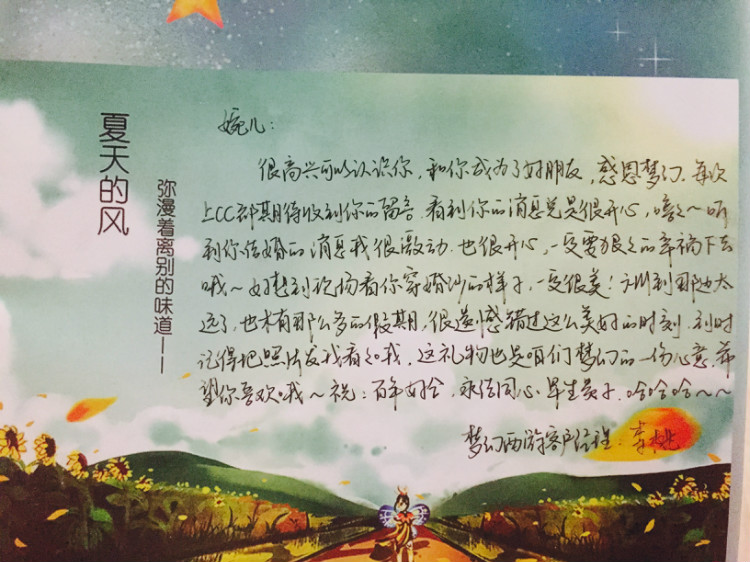 夏天的风
弥漫着离别的味道——
婉儿：
很高兴可以认识你，和你成为了好朋友，感恩梦幻。每次
上CC都期待收到你的留言。看到你的消息总是很开心，嘻嘻~ 听
到你结婚的消息我很激动，也很开心，一定要狠狠的幸福下去
哦~ 好想到现场看你穿婚纱的样子，一定很美！广州到那边太
远了，也木有那么多的假期，很遗憾错过这么美好的时刻，到时
记得把照片发我看看哦，这礼物也是咱们梦幻的一份心意，希
望你喜欢哦~ 祝：百年好合，永结同心，早生贵子，哈哈哈~~
梦幻西游客户经理：